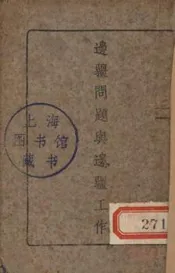 邊疆問題與邊疆工作
上海
图书馆
藏书
271